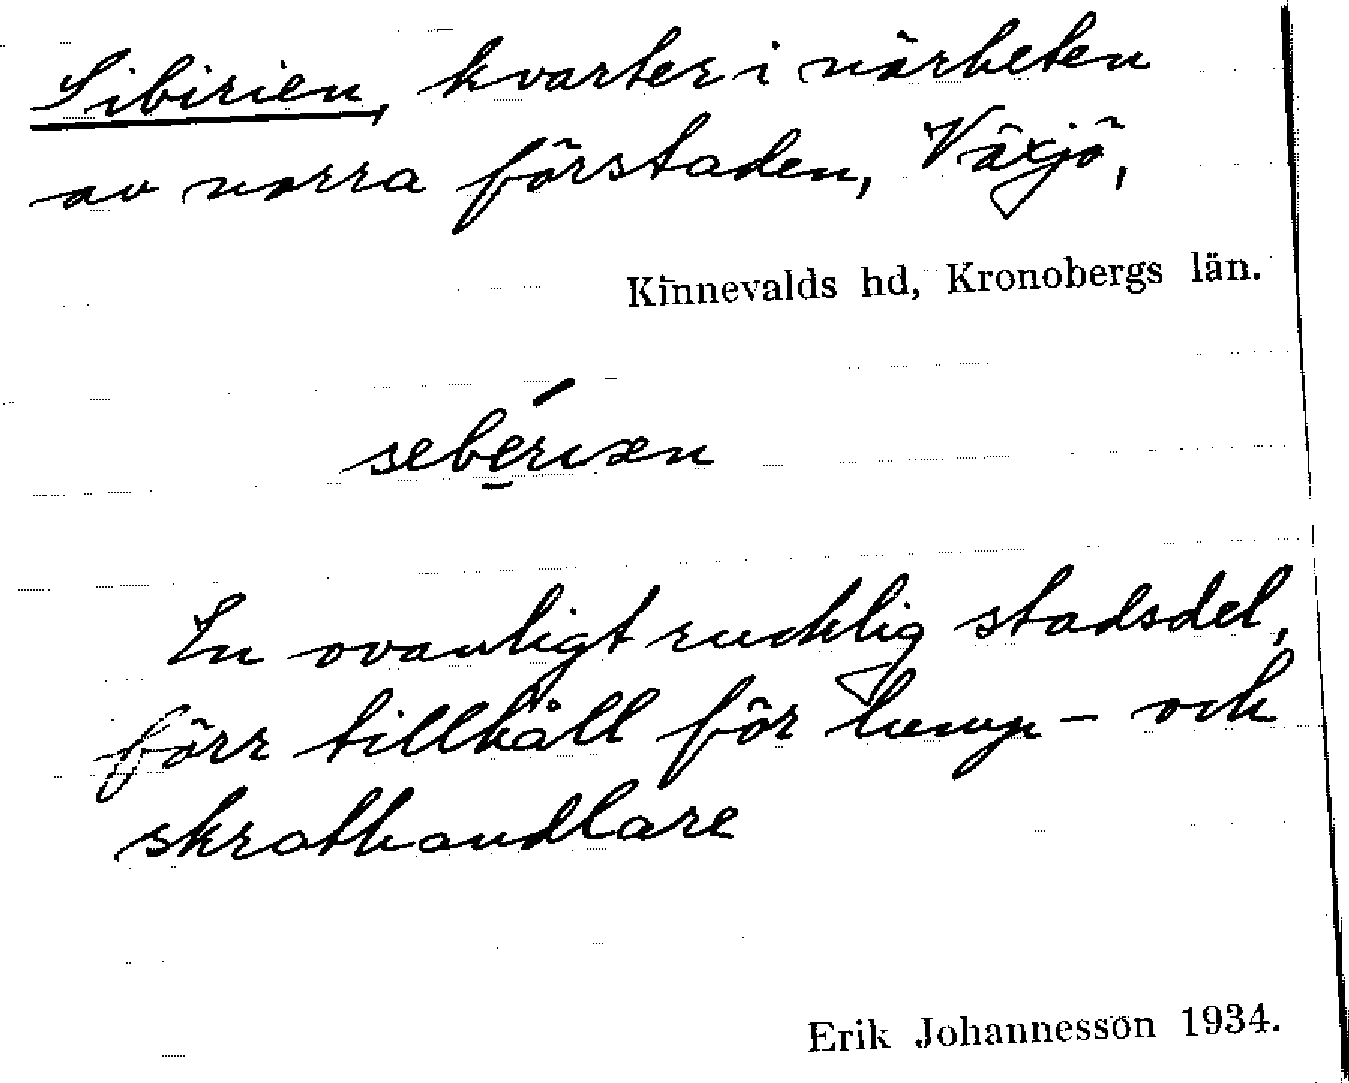 Sibirien, kvarter i närheten
av norra förstaden, Växjö,
Kinnevalds hd, Kronobergs län.
sebérıæn
En ovanligt rucklig stadsdel,
förr tillhåll för lump- och
skrothandlare
Erik Johannesson 1934.